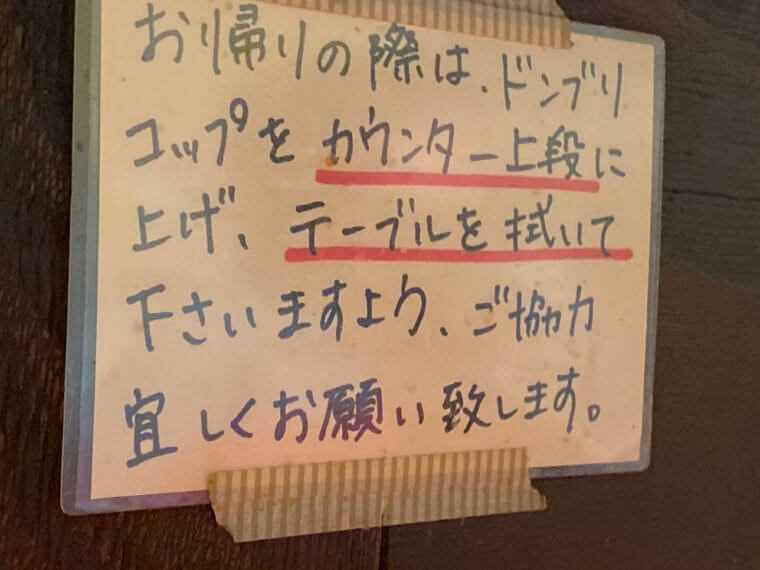 お帰りの際は、ドンブリ
コップをカウンター上段に
上げ、テーブルを拭いて
下さいますよう、ご協力
宜しくお願い致します。